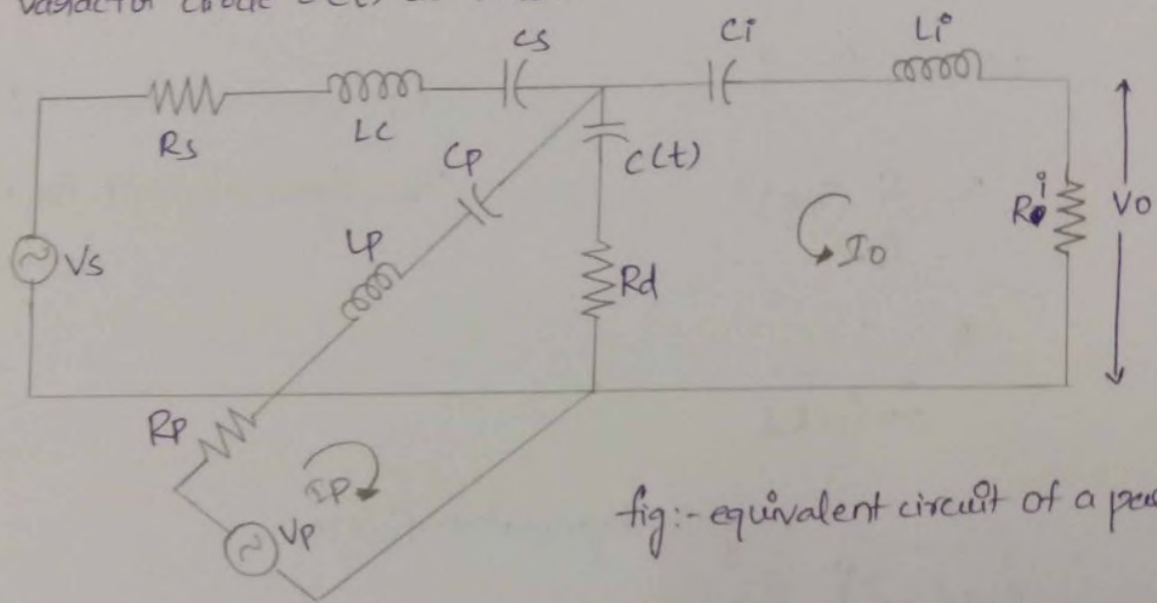 varactor diode C(t)
Cs
Ci
Li
Rs
Lc
Cp
C(t)
Lp
Rd
Vs
Io
Ri
Vo
Rp
Ip
Vp
fig:- equivalent circuit of a